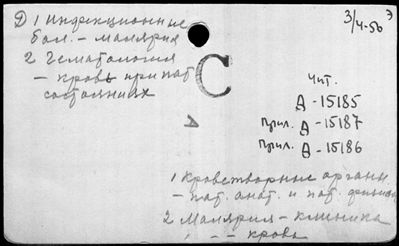 Д) 1 Инфекционные
бол. - малярия
2 Гематология
- кровь при пат.
состояниях
3/4-56
Э
С
Чит.
А-15185
Прил. А-15187
Прил. А-15186
А
1 Кроветворные органы
- пат. анат. и пат. физиол
2 Малярия - клиника
' - - кровь